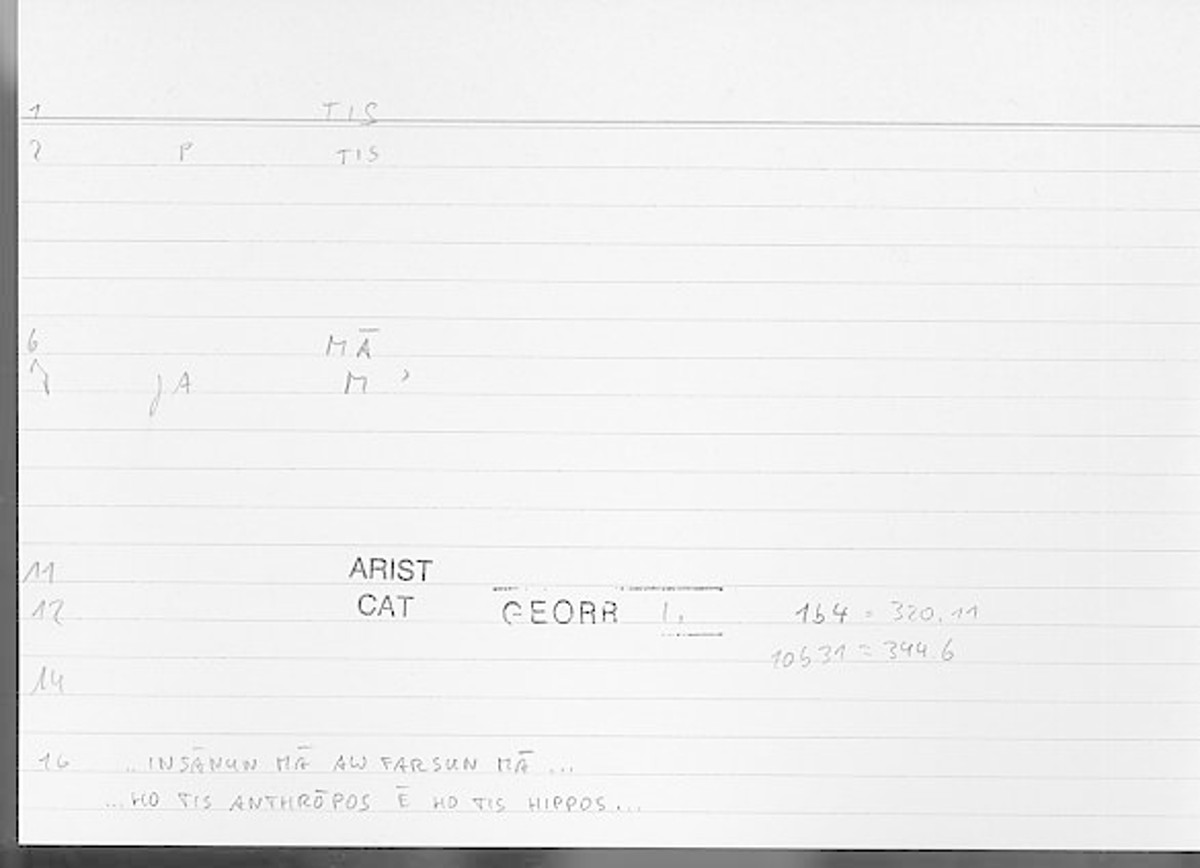 1 TIS
2 P TIS
6 MĀ
7 JA M ʾ
11 ARIST
12 CAT GEORR 1, 1b4 = 320.11
10b31 = 344.6
14
16 .. INSĀNUN MĀ AW FARSUN MĀ ...
... HO TIS ANTHRŌPOS Ē HO TIS HIPPOS ...